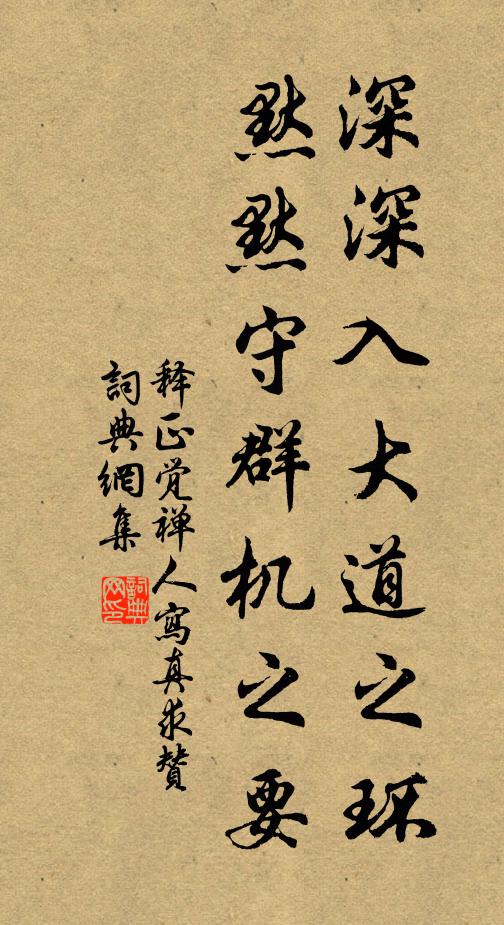 深深入大道之环
默默守群机之要
释正觉禅人寫真求赞
詞典網集
詞典网印